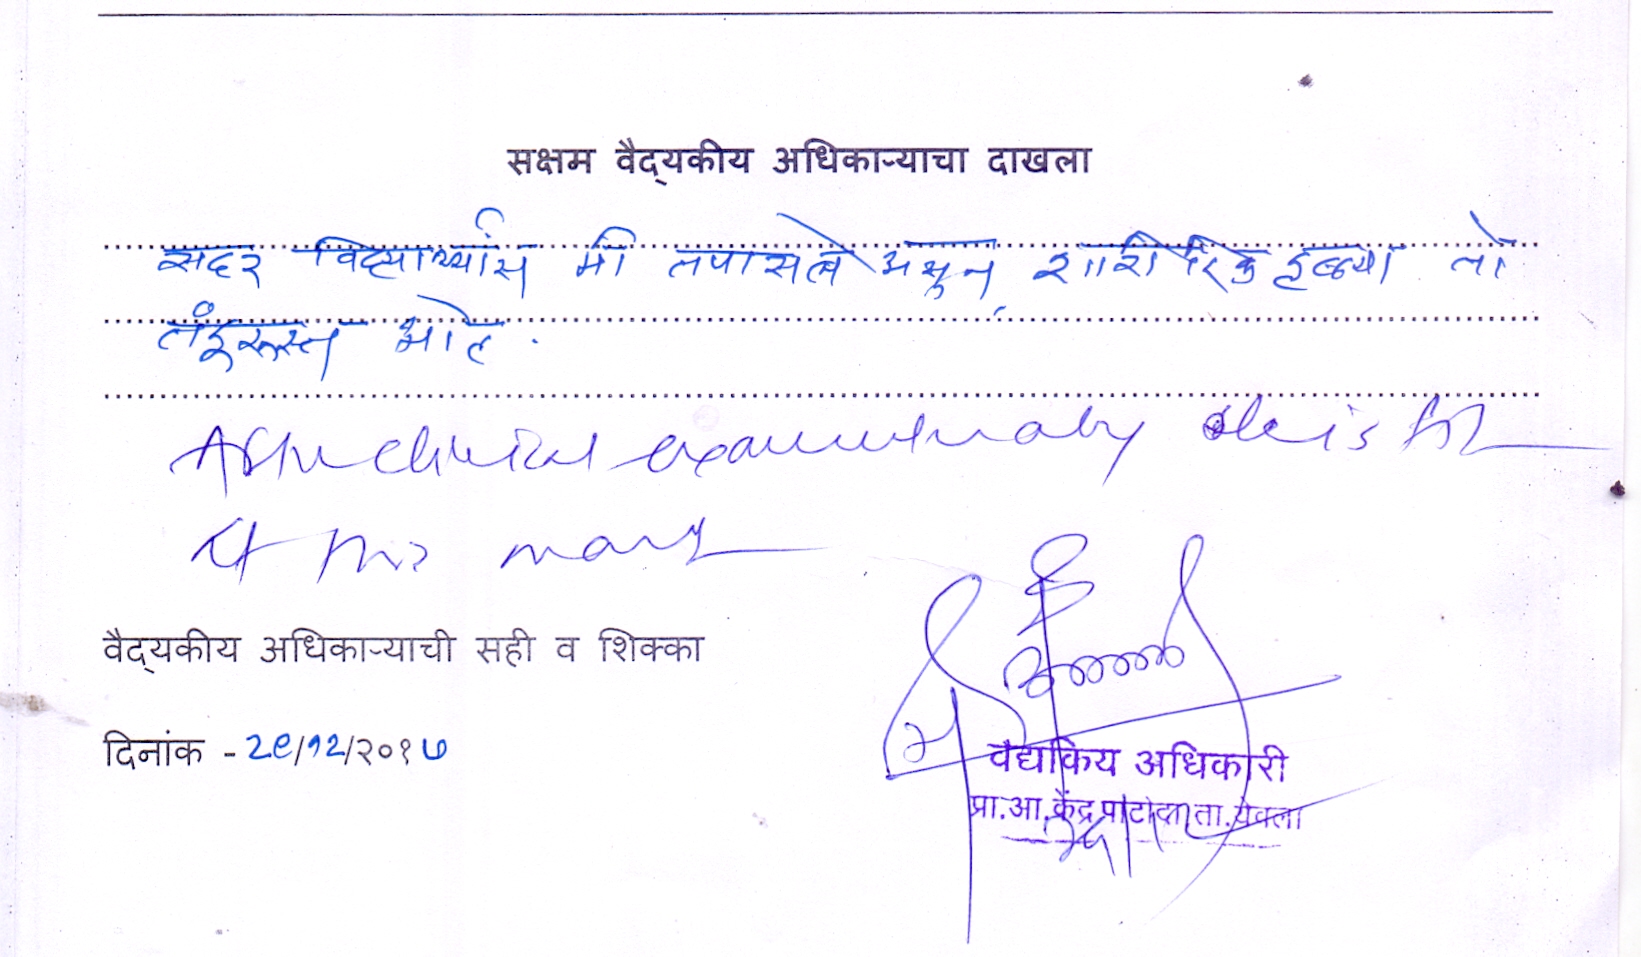 सक्षम वैद्यकीय अधिकाऱ्याचा दाखला
सदर विद्यार्थ्यास मी तपासले असून शारीरिक दृष्ट्या तो
तंदुरुस्त आहे.
clinical she is fit
वैद्यकीय अधिकाऱ्याची सही व शिक्का
दिनांक - २९/१२/२०१७
वैद्यकिय अधिकारी
प्रा.आ.केंद्र पाटोदा ता. येवला